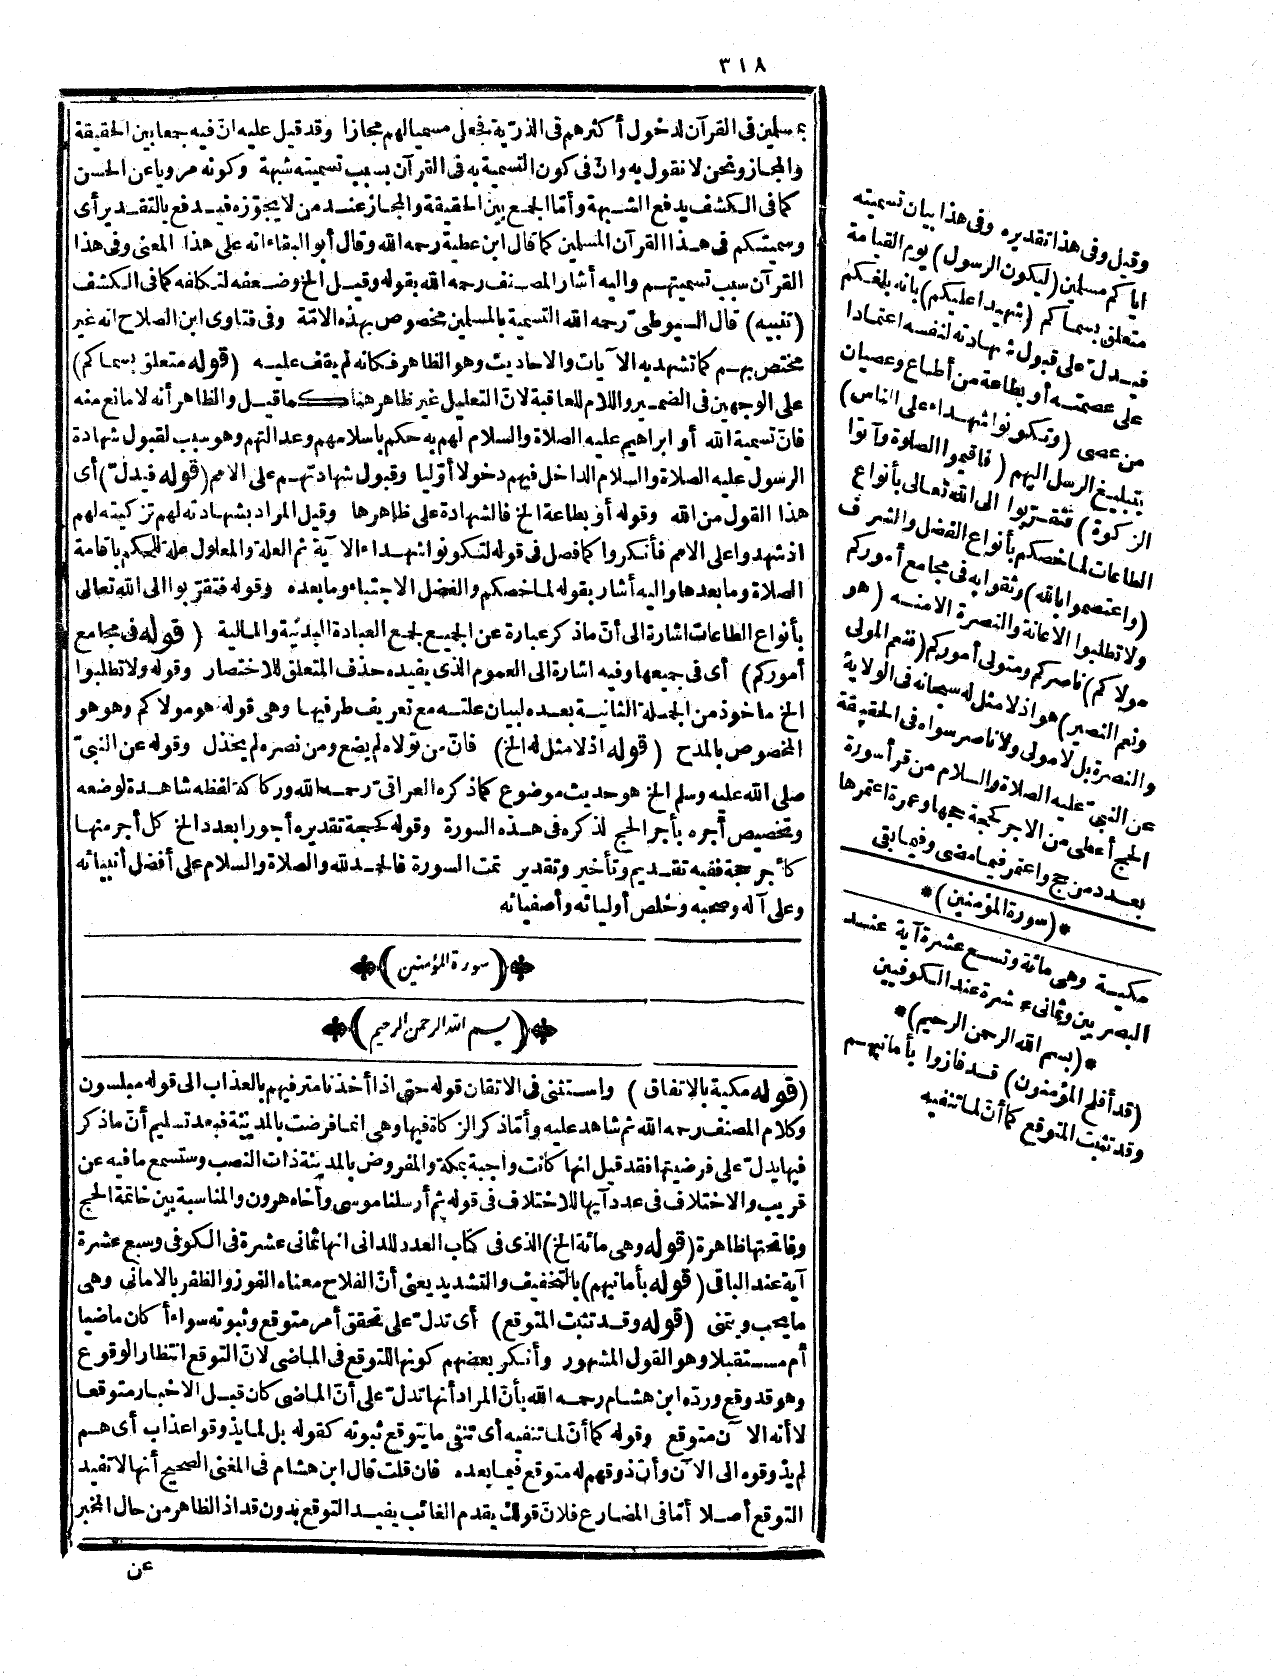 ٣١٨
بمسلمين فى القرآن لدخول أكثرهم فى الذرية فجعلى مسميا لهم مجازا وقد قيل عليه انّ فيه جمعا بين الحقيقة
والمجاز ونحن لا نقول به وانّ فى كون التسمية به فى القرآن بسبب تسميته شبهة وكونه مرويا عن الحسن
كما فى الكشف يدفع الشبهة وأمّا الجمع بين الحقيقة والمجاز عند من لا يجوّزه فيدفع بالتقدير أى
وسميتكم فى هذا القرآن المسلمين كما قال ابن عطية رحمه الله وقال أبو البقاء انه على هذا المعنى وفى هذا
القرآن سبب تسميتهم واليه أشار المصنف رحمه الله بقوله وقيل الخ وضعفه لتكلفه كما فى الكشف
(تنبيه) قال السيوطىّ رحمه الله التسمية بالمسلمين مخصوص بهذه الامّة وفى فتاوى ابن الصلاح انه غير
مختص بهم كما تشهد به الآيات والاحاديث وهو الظاهر فكانه لم يقف عليه (قوله متعلق بسماكم)
على الوجهين فى الضمير واللام للعاقبة لانّ التعليل غير ظاهر هنا كما قيل والظاهر أنه لا مانع منه
فانّ تسمية الله أو ابراهيم عليه الصلاة والسلام لهم به حكم باسلامهم وعدالتهم وهو سبب لقبول شهادة
الرسول عليه الصلاة والسلام الداخل فيهم دخولا أوّليا وقبول شهادتهم على الامم (قوله فيدلّ) أى
هذا القول من الله وقوله أو بطاعة الخ فالشهادة على ظاهرها وقيل المراد بشهادته لهم تزكيته لهم
اذ شهدوا على الامم فأنكروا كما فصل فى قوله لتكونوا شهداء الآية ثم العلة والمعلول علة للحكم باقامة
الصلاة وما بعدها واليه أشار بقوله لما خصكم والفضل الاجتباء وما بعده وقوله فتقرّبوا الى الله تعالى
بأنواع الطاعات اشارة الى أنّ ما ذكر عبارة عن الجميع لجمع العبادة البدنية والمالية (قوله فى مجامع
أموركم) أى فى جميعها وفيه اشارة الى العموم الذى يفيده حذف المتعلق للاختصار وقوله ولا تطلبوا
الخ مأخوذ من الجملة الثانية بعده لبيان علته مع تعريف طرفيها وهى قوله هو مولاكم وهو هو
المخصوص بالمدح (قوله اذ لا مثل له الخ) فانّ من تولاه لم يضع ومن نصره لم يخذل وقوله عن النبىّ
صلى الله عليه وسلم الخ هو حديث موضوع كما ذكره العراقىّ رحمه الله وركاكة لفظه شاهدة لوضعه
وتخصيص أجره بأجر الحج لذكره فى هذه السورة وقوله كحجة تقديره أجورا بعدد الخ كل أجر منها
كأجر حجة ففيه تقديم وتأخير وتقدير تمت السورة فالحمد لله والصلاة والسلام على أفضل أنبيائه
وعلى آله وصحبه وخلص أوليائه وأصفيائه
(سورة المؤمنين)
(بسم الله الرحمن الرحيم)
(قوله مكية بالاتفاق) واستثنى فى الاتقان قوله حتى اذا أخذنا مترفيهم بالعذاب الى قوله مبلسون
وكلام المصنف رحمه الله ثم شاهد عليه وأمّا ذكر الزكاة فيها وهى انما فرضت بالمدينة فبعد تسليم أنّ ما ذكر
فيها يدلّ على فرضيتها فقد قيل انها كانت واجبة بمكة والمفروض بالمدينة ذات النصب وستسمع ما فيه عن
قريب والاختلاف فى عدد آيها للاختلاف فى قوله ثم أرسلنا موسى وأخاه هرون والمناسبة بين خاتمة الحج
وفاتحتها ظاهرة (قوله وهى مائة الخ) الذى فى كتاب العدد للدانى انها ثمانى عشرة فى الكوفى وسبع عشرة
آية عند الباقى (قوله بأمانيهم) بالتخفيف والتشديد يعنى أنّ الفلاح معناه الفوز والظفر بالامانى وهى
ما يحب ويتمنى (قوله وقد تثبت المتوقع) أى تدلّ على تحقق أمر متوقع وثبوته سواء أكان ماضيا
أم مستقبلا وهو القول المشهور وأنكر بعضهم كونها للتوقع فى الماضى لانّ التوقع انتظار الوقوع
وهو قد وقع وردّه ابن هشام رحمه الله بأنّ المراد أنها تدلّ على أنّ الماضى كان قبل الاخبار متوقعا
لا أنه الآن متوقع وقوله كما أنّ لما تنفيه أى تنفى ما يتوقع ثبوته كقوله بل لما يذوقوا عذاب أى هم
لم يذوقوه الى الآن وأنّ ذوقهم له متوقع فيما بعده فان قلت قال ابن هشام فى المغنى الصحيح أنها لا تفيد
التوقع أصلا أمّا فى المضارع فلانّ قولك يقدم الغائب يفيد التوقع بدون قد اذ الظاهر من حال المخبر
عن
وقيل وفى هذا تقديره وفى هذا بيان تسميته
اياكم مسلمين (ليكون الرسول) يوم القيامة
متعلق بسماكم (شهيدا عليكم) بانه بلغكم
فيدلّ على قبول شهادته لنفسه اعتمادا
على عصمته أو بطاعة من أطاع وعصيان
من عصى (وتكونوا شهداء على الناس)
بتبليغ الرسل اليهم (فاقيموا الصلوة وآتوا
الزكوة) فتقرّبوا الى الله تعالى بأنواع
الطاعات لما خصكم بأنواع الفضل والشرف
(واعتصموا بالله) وثقوا به فى مجامع أموركم
ولا تطلبوا الاعانة والنصرة الا منه (هو
مولاكم) ناصركم ومتولى أموركم (فنعم المولى
ونعم النصير) هو اذ لا مثل له سبحانه فى الولاية
والنصرة بل لا مولى ولا ناصر سواه فى الحقيقة
عن النبىّ عليه الصلاة والسلام من قرأ سورة
الحج أعطى من الاجر كحجة حجها وعمرة اعتمرها
بعدد من حج واعتمر فيما مضى وفيما بقى
*(سورة المؤمنين)*
مكية وهى مائة وتسع عشرة آية عند
البصريين وثمانى عشرة عند الكوفيين
*(بسم الله الرحمن الرحيم)*
(قد أفلح المؤمنون) قد فازوا بأمانيهم
وقد تثبت المتوقع كما أنّ لما تنفيه